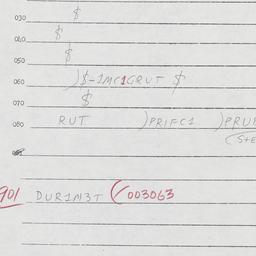 030 $
040 $
050 $
060 )$-1MC1GRUT $
070 $
080 RUT )PRIFC1 )PRU
(STE
901 DUR1M3T (003063